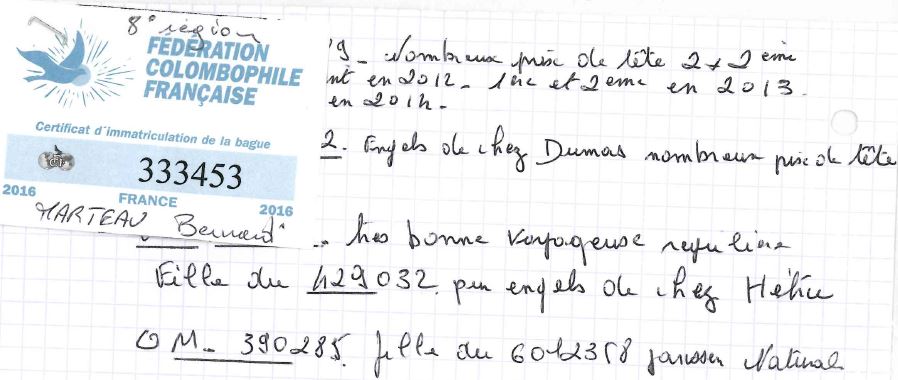 8e région
FÉDÉRATION
COLOMBOPHILE
FRANÇAISE
Certificat d'immatriculation de la bague
333453
2016 FRANCE 2016
MARTEAU Bernard
9 - Nombreux prix de tête 2 x 2eme
nt en 2012 - 1ere et 2eme en 2013
en 2014 -
2. Engels de chez Dumas nombreux prix de tête
très bonne voyageuse regulière
Fille du 429032 pur engels de chez
M - 390285 fille du janssen Natural